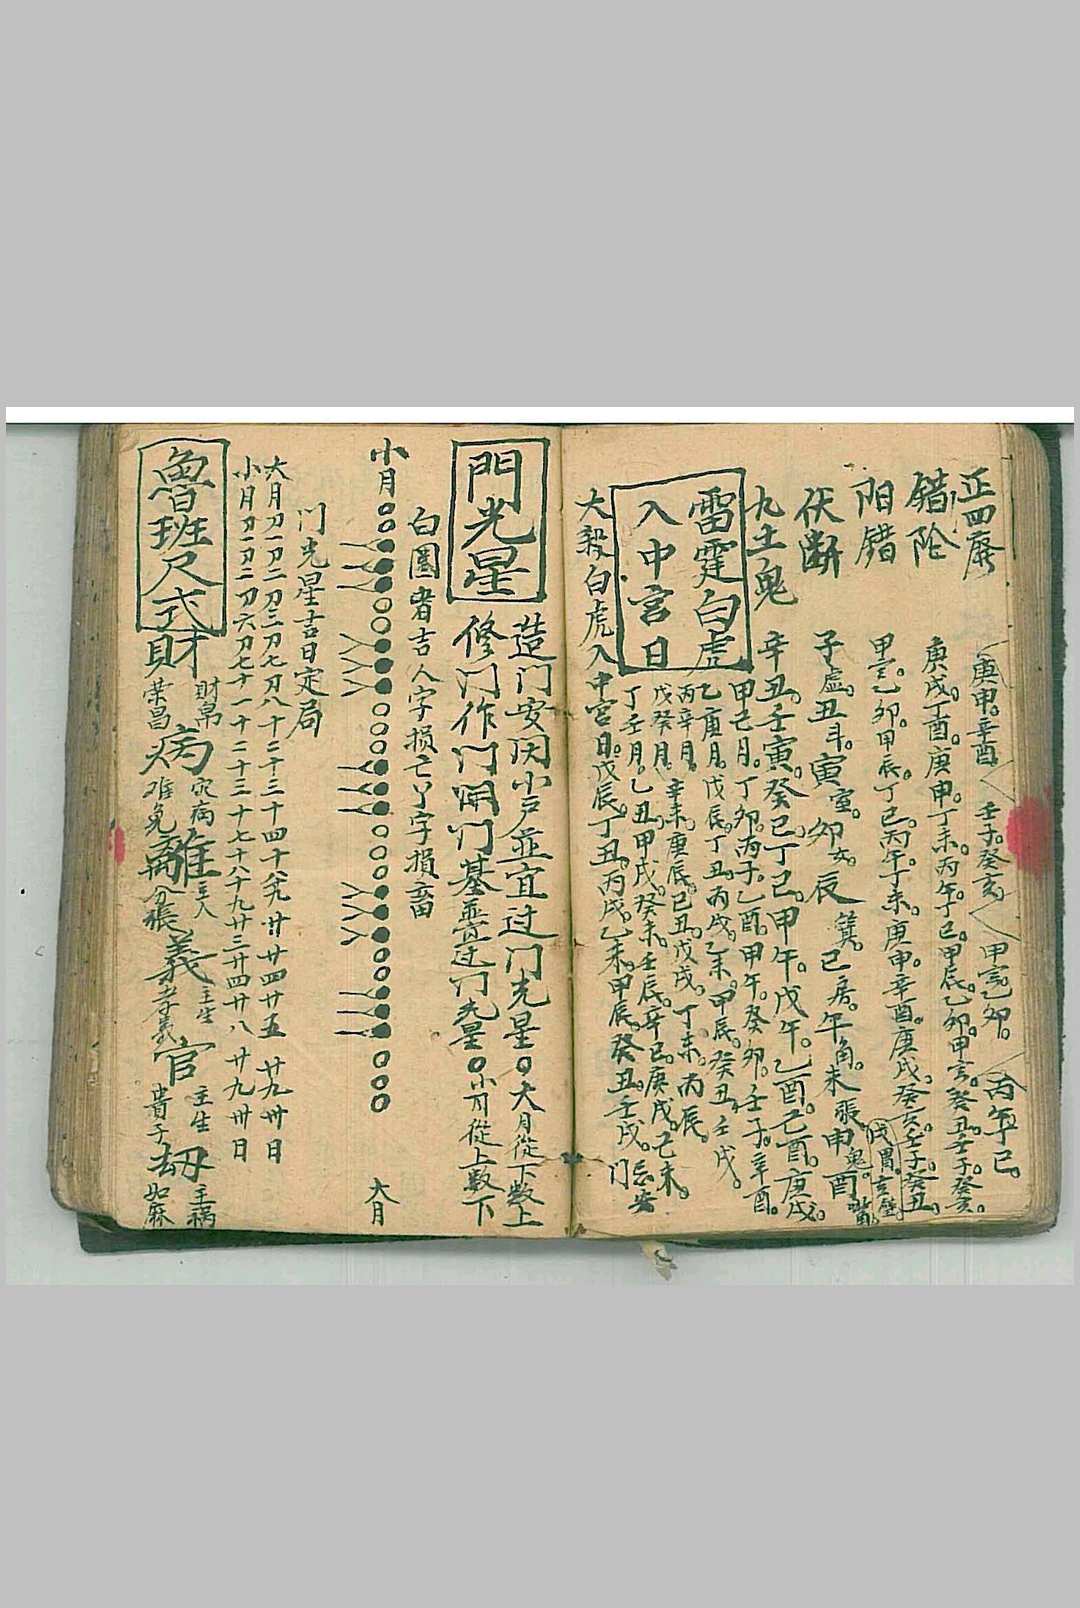 正四廢 庚申。辛酉。壬子。癸亥。甲寅。乙卯。丙午。丁巳。
錯陰 庚戌。丁酉。庚申。丁未。丙午。丁巳。甲辰。乙卯。甲寅。癸丑。壬子。癸亥。
陽錯 甲寅。乙卯。甲辰。丁巳。丙午。丁未。庚申。辛酉。庚戌。癸亥。壬子。癸丑。
伏斷 子虛。丑斗。寅室。卯女。辰箕。巳房。午角。未張。申鬼。酉觜。戌胃。亥壁。
九土鬼 辛丑。壬寅。癸巳。丁巳。甲午。戊午。乙酉。己酉。庚戌。
雷霆白虎
入中宮日
甲己月。丁卯。丙子。乙酉。甲午。癸卯。壬子。辛酉。
乙庚月。戊辰。丁丑。丙戌。乙未。甲辰。癸丑。壬戌。
丙辛月。辛未。庚辰。己丑。戊戌。丁未。丙辰。
戊癸月。甲戌。癸未。壬辰。辛丑。庚戌。己未。
丁壬月。乙丑。
大殺白虎入中宮日。戊辰。丁丑。丙戌。乙未。甲辰。癸丑。壬戌。门忌安
門光星
造门安床小戸並宜过门光星。大月從下数上
修门作门開门基並过门光星。小月從上数下
白圈者吉人字損亡丫字損畜
小月
大月
门光星吉日定局
大月初一初二初三初七初八十二十三十四十八十九廿廿四廿五廿九卅日
小月初一初二初六初七十一十二十三十七十八十九廿三廿四廿八廿九卅日
魯班尺式
財 財帛荣昌 病 疾病难免 離 主人分張 義 主生孝義 官 主生貴子 刼 主禍如麻